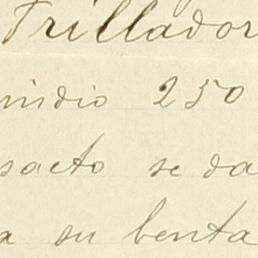 Trillador
indio 250
sacto se da
a su benta